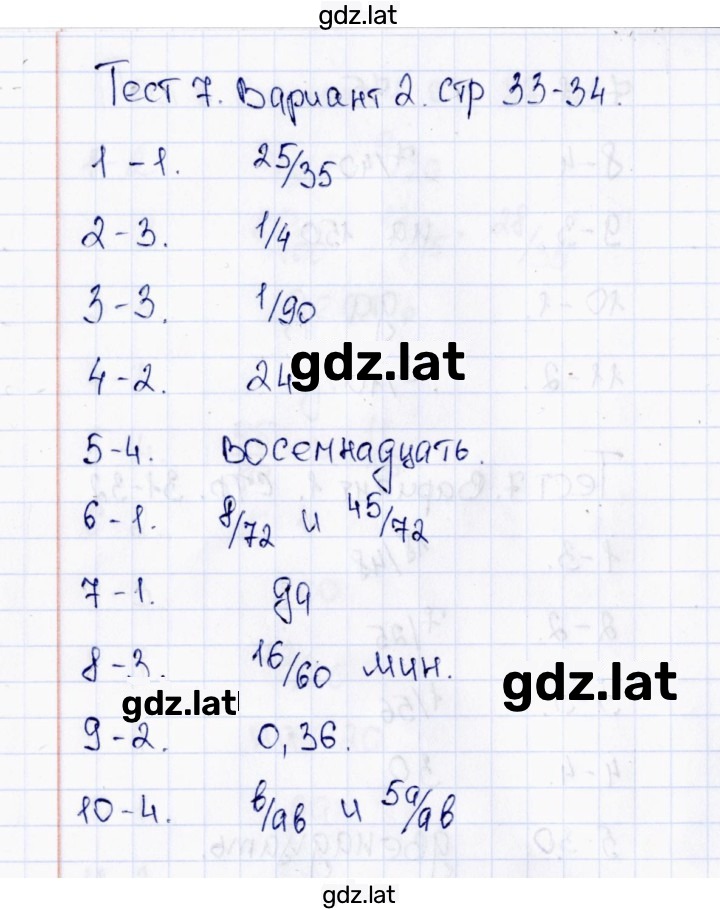 gdz.lat
Тест 7. Вариант 2. стр 33-34.
1-1. 25/35
2-3. 1/4
3-3. 1/90
4-2. 24
gdz.lat
5-4. восемнадцать.
6-1. 8/72 и 45/72
7-1. да
8-3. 16/60 мин.
gdz.lat
gdz.lat
9-2. 0,36.
10-4. в/ав и 5а/ав
gdz.lat